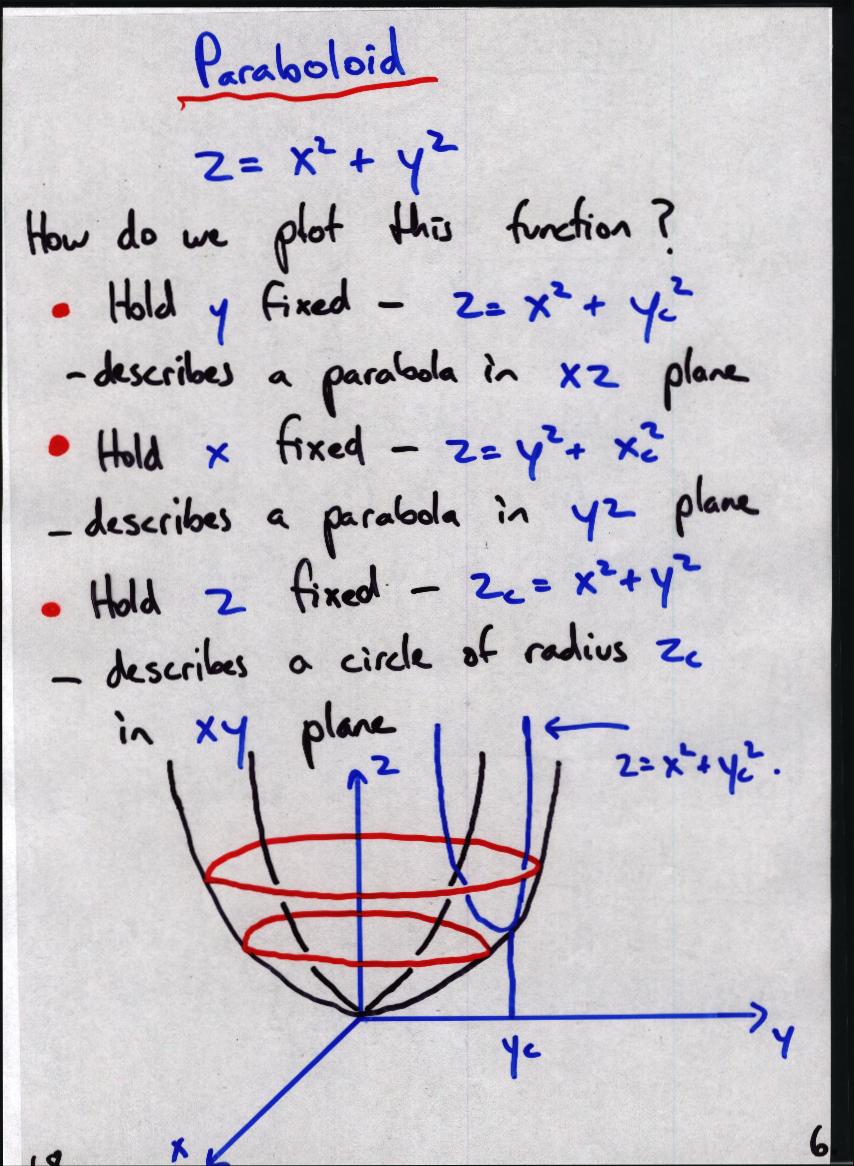 Paraboloid
z = x² + y²
How do we plot this function?
• Hold y fixed – z = x² + y_c²
– describes a parabola in xz plane
• Hold x fixed – z = y² + x_c²
– describes a parabola in yz plane
• Hold z fixed – z_c = x² + y²
– describes a circle of radius z_c
in xy plane
z
z = x² + y_c².
y_c
y
x
6